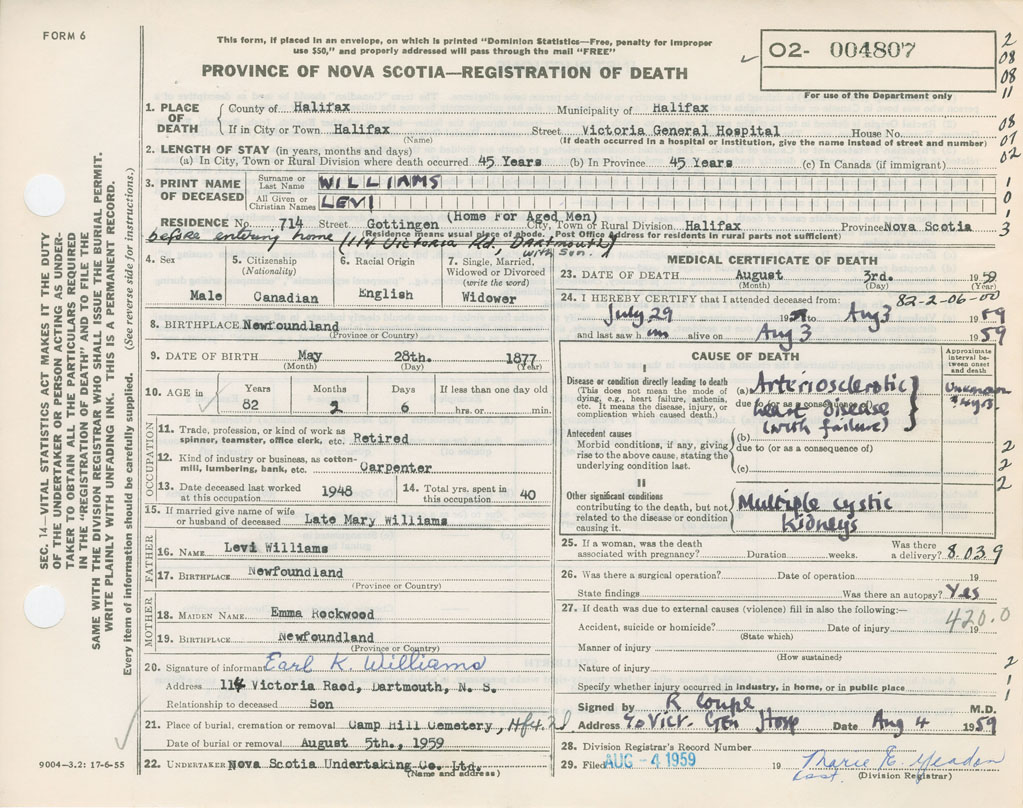 FORM 6
This form, if placed in an envelope, on which is printed "Dominion Statistics—Free, penalty for improper
use $50," and properly addressed will pass through the mail "FREE"
PROVINCE OF NOVA SCOTIA—REGISTRATION OF DEATH
02- 004807
For use of the Department only
2
08
08
11
08
07
02
1
0
1
3
SEC. 14—VITAL STATISTICS ACT MAKES IT THE DUTY
OF THE UNDERTAKER OR PERSON ACTING AS UNDER-
TAKER TO OBTAIN ALL THE PARTICULARS REQUIRED
IN THE "REGISTRATION OF DEATH" AND TO FILE THE
SAME WITH THE DIVISION REGISTRAR WHO SHALL ISSUE THE BURIAL PERMIT.
WRITE PLAINLY WITH UNFADING INK. THIS IS A PERMANENT RECORD.
Every item of information should be carefully supplied. (See reverse side for instructions.)
1. PLACE OF DEATH
County of Halifax Municipality of Halifax
If in City or Town Halifax Street Victoria General Hospital House No.
(Name) (If death occurred in a hospital or institution, give the name instead of street and number)
2. LENGTH OF STAY (in years, months and days)
(a) In City, Town or Rural Division where death occurred 45 Years (b) In Province 45 Years (c) In Canada (if immigrant)
3. PRINT NAME OF DECEASED
Surname or Last Name WILLIAMS
All Given or Christian Names LEVI
(Home For Aged Men)
RESIDENCE No. 714 Street Gottingen City, Town or Rural Division Halifax Province Nova Scotia
(Residence means usual place of abode. Post Office Address for residents in rural parts not sufficient)
before entering home (114 Victoria Rd, Dartmouth)
with son.
4. Sex
Male
5. Citizenship
(Nationality)
Canadian
6. Racial Origin
English
7. Single, Married,
Widowed or Divorced
(write the word)
Widower
8. BIRTHPLACE Newfoundland
(Province or Country)
9. DATE OF BIRTH May 28th. 1877
(Month) (Day) (Year)
10. AGE in
Years Months Days If less than one day old
82 2 6 hrs. or min.
OCCUPATION
11. Trade, profession, or kind of work as
spinner, teamster, office clerk, etc. Retired
12. Kind of industry or business, as cotton-
mill, lumbering, bank, etc. Carpenter
13. Date deceased last worked
at this occupation 1948
14. Total yrs. spent in
this occupation 40
15. If married give name of wife
or husband of deceased Late Mary Williams
FATHER
16. NAME Levi Williams
17. BIRTHPLACE Newfoundland
(Province or Country)
MOTHER
18. MAIDEN NAME Emma Rockwood
19. BIRTHPLACE Newfoundland
(Province or Country)
20. Signature of informant Earl K. Williams
Address 114 Victoria Raod, Dartmouth, N. S.
Relationship to deceased Son
21. Place of burial, cremation or removal Camp Hill Cemetery, Hfx.
Date of burial or removal August 5th., 1959
22. UNDERTAKER Nova Scotia Undertaking Co. Ltd.
(Name and address)
9004—3.2: 17-6-55
MEDICAL CERTIFICATE OF DEATH
23. DATE OF DEATH August 3rd. 1959
(Month) (Day) (Year)
24. I HEREBY CERTIFY that I attended deceased from: 82-2-06-00
July 29 1959 to Aug 3 1959
and last saw him alive on Aug 3 1959
CAUSE OF DEATH
Approximate
interval be-
tween onset
and death
I
Disease or condition directly leading to death
(This does not mean the mode of
dying, e.g., heart failure, asthenia,
etc. It means the disease, injury, or
complication which caused death.)
(a) Arteriosclerotic
due to (or as a consequence of)
heart disease
(with failure)
Unknown
Antecedent causes
Morbid conditions, if any, giving
rise to the above cause, stating the
underlying condition last.
(b)
due to (or as a consequence of)
(c)
2
2
2
II
Other significant conditions
contributing to the death, but not
related to the disease or condition
causing it.
Multiple cystic
kidneys
25. If a woman, was the death
associated with pregnancy? Duration weeks. Was there
a delivery? 8.039
26. Was there a surgical operation? Date of operation 19
State findings Was there an autopsy? Yes
27. If death was due to external causes (violence) fill in also the following:—
420.0
Accident, suicide or homicide? Date of injury 19
(State which)
Manner of injury
(How sustained)
Nature of injury
Specify whether injury occurred in industry, in home, or in public place
2
1
1
Signed by R Coupe M.D.
Address c/o Vict. Gen Hosp Date Aug 4 1959
28. Division Registrar's Record Number
29. Filed AUG - 4 1959 19 Marie E.
(Division Registrar)